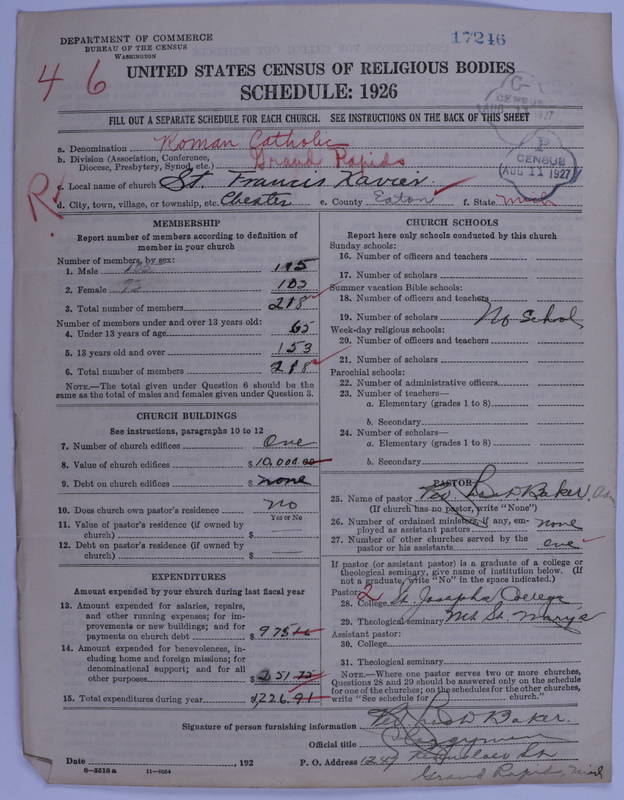 DEPARTMENT OF COMMERCE
BUREAU OF THE CENSUS
WASHINGTON
17246
4 6
UNITED STATES CENSUS OF RELIGIOUS BODIES
SCHEDULE: 1926
CENSUS
AUG 11 1927
FILL OUT A SEPARATE SCHEDULE FOR EACH CHURCH. SEE INSTRUCTIONS ON THE BACK OF THIS SHEET
a. Denomination Roman Catholic
b. Division (Association, Conference, Diocese, Presbytery, Synod, etc.) Grand Rapids
P
CENSUS
AUG 11 1927
R
c. Local name of church St. Francis Xavier
d. City, town, village, or township, etc. Chester e. County Eaton f. State Mich
MEMBERSHIP
Report number of members according to definition of
member in your church
Number of members, by sex:
1. Male 115
2. Female 103
3. Total number of members 218
Number of members under and over 13 years old:
4. Under 13 years of age 65
5. 13 years old and over 153
6. Total number of members 218
NOTE.—The total given under Question 6 should be the
same as the total of males and females given under Question 3.
CHURCH BUILDINGS
See instructions, paragraphs 10 to 12
7. Number of church edifices One
8. Value of church edifices $ 10,000.00
9. Debt on church edifices $ none
10. Does church own pastor's residence no
Yes or No
11. Value of pastor's residence (if owned by
church) $
12. Debt on pastor's residence (if owned by
church) $
EXPENDITURES
Amount expended by your church during last fiscal year
13. Amount expended for salaries, repairs,
and other running expenses; for im-
provements or new buildings; and for
payments on church debt $ 975
14. Amount expended for benevolences, in-
cluding home and foreign missions; for
denominational support; and for all
other purposes $ 251
15. Total expenditures during year
CHURCH SCHOOLS
Report here only schools conducted by this church
Sunday schools:
16. Number of officers and teachers
17. Number of scholars
Summer vacation Bible schools:
18. Number of officers and teachers
19. Number of scholars No School
Week-day religious schools:
20. Number of officers and teachers
21. Number of scholars
Parochial schools:
22. Number of administrative officers
23. Number of teachers—
a. Elementary (grades 1 to 8)
b. Secondary
24. Number of scholars—
a. Elementary (grades 1 to 8)
b. Secondary
PASTOR
25. Name of pastor Rev. Baker
(If church has no pastor, write "None")
26. Number of ordained ministers, if any, em-
ployed as assistant pastors none
27. Number of other churches served by the
pastor or his assistants one
If pastor (or assistant pastor) is a graduate of a college or
theological seminary, give name of institution below. (If
not a graduate, write "No" in the space indicated.)
Pastor: 2
28. College St. Josephs College
29. Theological seminary Mt St. Marys
Assistant pastor:
30. College
31. Theological seminary
NOTE.—Where one pastor serves two or more churches,
Questions 28 and 29 should be answered only on the schedule
for one of the churches; on the schedules for the other churches,
write "See schedule for church."
Signature of person furnishing information Rev. Baker.
Official title Clergyman
Date , 192 P. O. Address St
Grand Rapids, Mich
8—5518a 11—9264